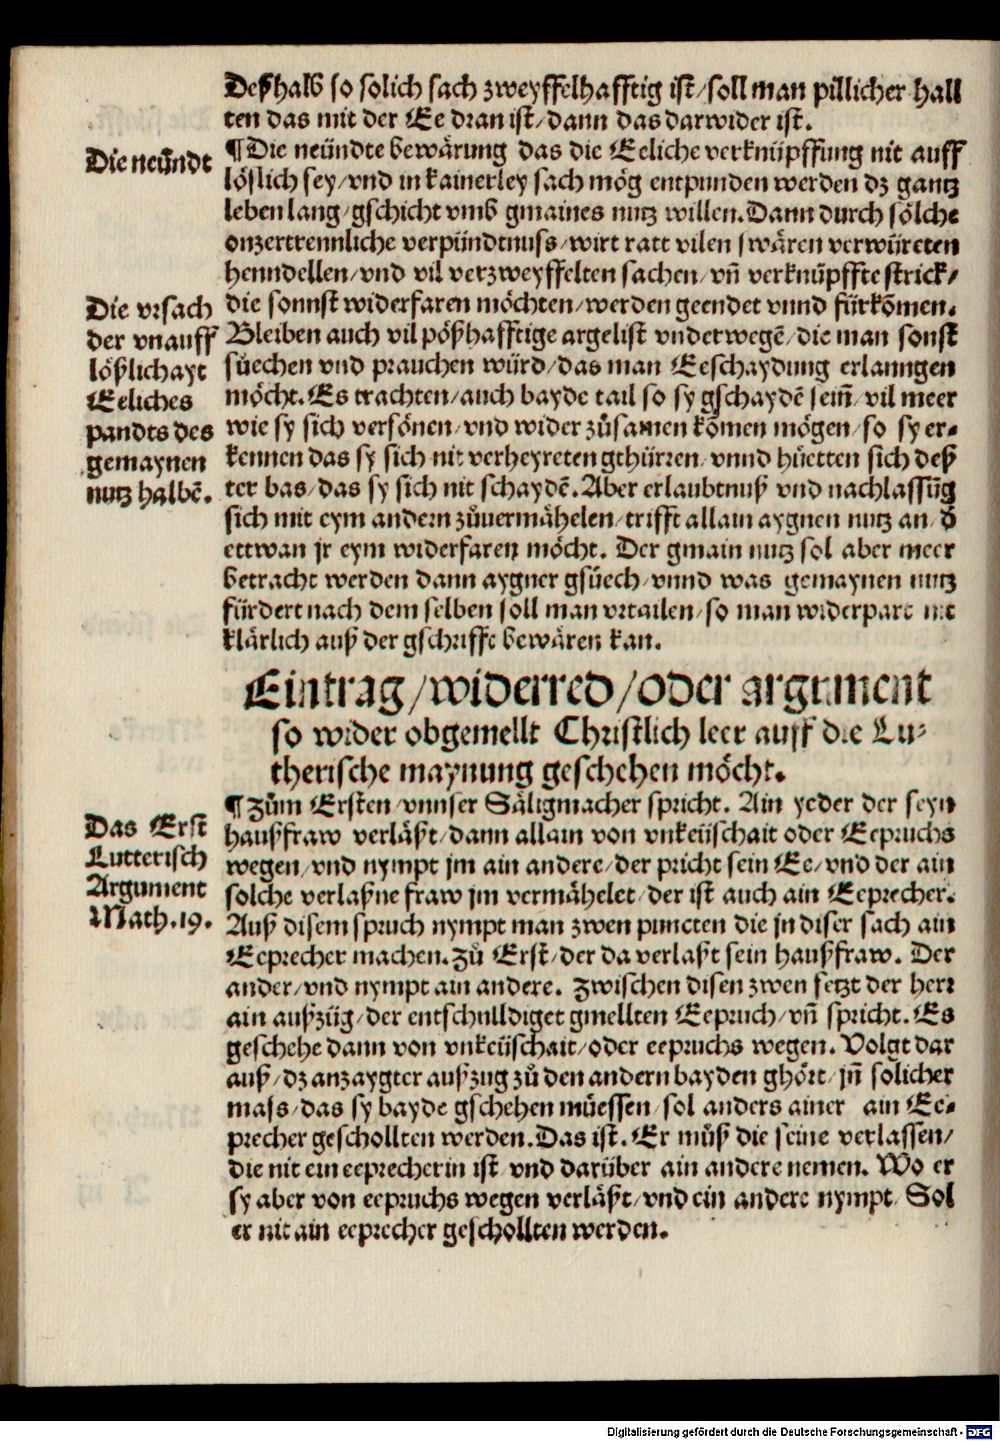 Deßhalb so solich sach zweyffelhafftig ist/soll man pillicher hall
ten das mit der Ee dran ist/dann das darwider ist.
Die neündt
¶Die neündte bewårung das die Eeliche verknüpffung nit auff
lößlich sey/vnd in kainerley sach mög entpunden werden dz gantz
leben lang/gschicht vmb gmaines nutz willen. Dann durch sölche
onzertrennliche verpündtnuss/wirt ratt vilen swåren verwüreten
henndellen/vnd vil verzweyffelten sachen/vñ verknüpffte strick/
Die vrsach
der vnauff
lößlichayt
Eeliches
pandts des
gemaynen
nutz halbẽ.
die sonnst widerfaren möchten/werden geendet vnnd fürkõmen.
Bleiben auch vil pößhafftige argelist vnderwegẽ/die man sonst
süechen vnd prauchen würd/das man Eeschaydung erlanngen
möcht. Es trachten/auch bayde tail so sy gschaydẽ sein̄/vil meer
wie sy sich versönen/vnd wider zůsamen kõmen mögen/so sy er-
kennen das sy sich nit verheyreten gthürren/vnnd hüetten sich deß
ter bas/das sy sich nit schaydẽ. Aber erlaubtnuß vnd nachlassũg
sich mit eym andern zůuermåhelen/trifft allain aygnen nutz an/ď
ettwan jr eym widerfaren möcht. Der gmain nutz sol aber meer
betracht werden dann aygner gsüech/vnnd was gemaynen nutz
fürdert nach dem selben soll man vrtailen/so man widerpart nit
klårlich auß der gschrifft bewåren kan.
Eintrag/widerred/oder argument
so wider obgemellt Christlich leer auff die Lu-
therische maynung geschehen möcht.
Das Erst
Lutterisch
Argument
Math.19.
¶Zům Ersten/vnnser Såligmacher spricht. Ain yeder der seyn
haußfraw verlåßt/dann allain von vnkeüschait oder Eepruchs
wegen/vnd nympt jm ain andere/der pricht sein Ee/vnd der ain
solche verlaßne fraw jm vermåhelet/der ist auch ain Eeprecher.
Auß disem spruch nympt man zwen puncten die jn diser sach ain
Eeprecher machen. Zů Erst/der da verlaßt sein haußfraw. Der
ander/vnd nympt ain andere. Zwischen disen zwen setzt der herr
ain außzüg/der entschulldiget gmellten Eepruch/vñ spricht. Es
geschehe dann von vnkeüschait/oder eepruchs wegen. Volgt dar
auß/dz anzaygter außzug zů den andern bayden ghört/jñ solicher
mass/das sy bayde gschehen müessen/sol anders ainer ain Ee-
precher geschollten werden. Das ist. Er můß die seine verlassen/
die nit ein eeprecherin ist/vnd darüber ain andere nemen. Wo er
sy aber von eepruchs wegen verlåßt/vnd ein andere nympt/Sol
er nit ain eeprecher geschollten werden.
Digitalisierung gefördert durch die Deutsche Forschungsgemeinschaft - DFG